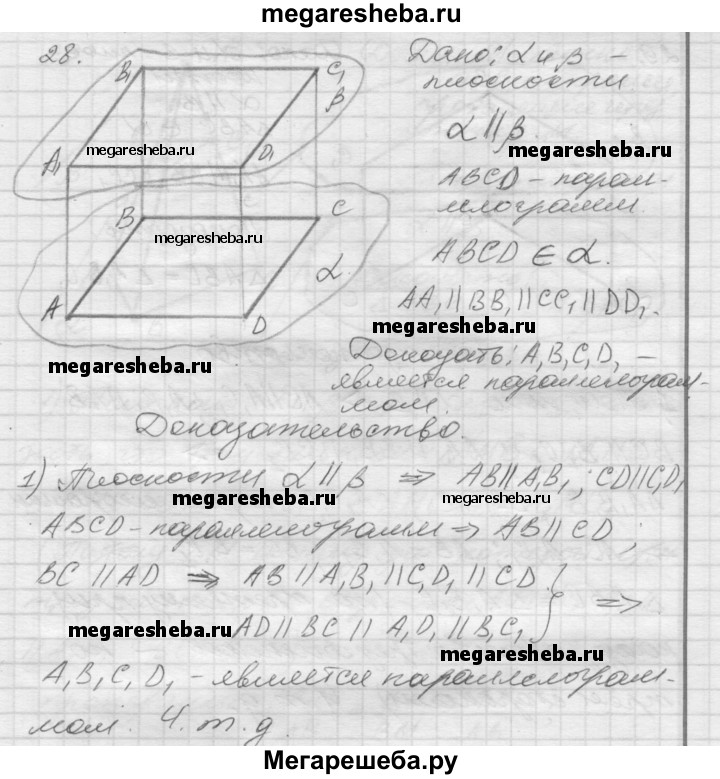 megaresheba.ru
28.
B₁ C₁
β
A₁ megaresheba.ru D₁
B C
megaresheba.ru
α
A D
megaresheba.ru
Дано: α и β –
плоскости
α || β.
megaresheba.ru
ABCD – парал-
лелограмм
ABCD ∈ α.
AA₁ || BB₁ || CC₁ || DD₁.
megaresheba.ru
Доказать: A₁B₁C₁D₁ –
является параллелограм-
мом.
Доказательство.
1) Плоскости α || β ⇒ AB || A₁B₁; CD || C₁D₁
megaresheba.ru megaresheba.ru
ABCD – параллелограмм ⇒ AB || CD;
BC || AD ⇒ AB || A₁B₁ || C₁D₁ || CD } ⇒
megaresheba.ru AD || BC || A₁D₁ || B₁C₁
megaresheba.ru
A₁B₁C₁D₁ – является параллелограм-
мом. Ч.т.д.
Мегарешеба.ру